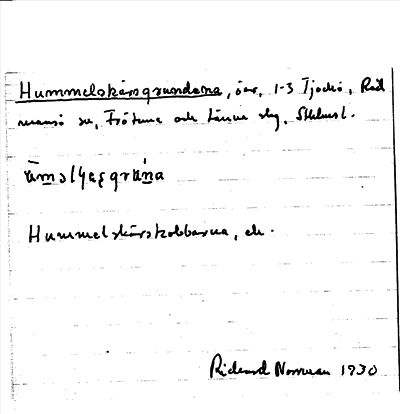 Hummelskärsgrundena, öar, 1-3 Tjockö, Råd
mansö sn, Frötuna och Länna skg, Sthlms l.
Hummelskärskobbarna, ek.
Rickard Norman 1930